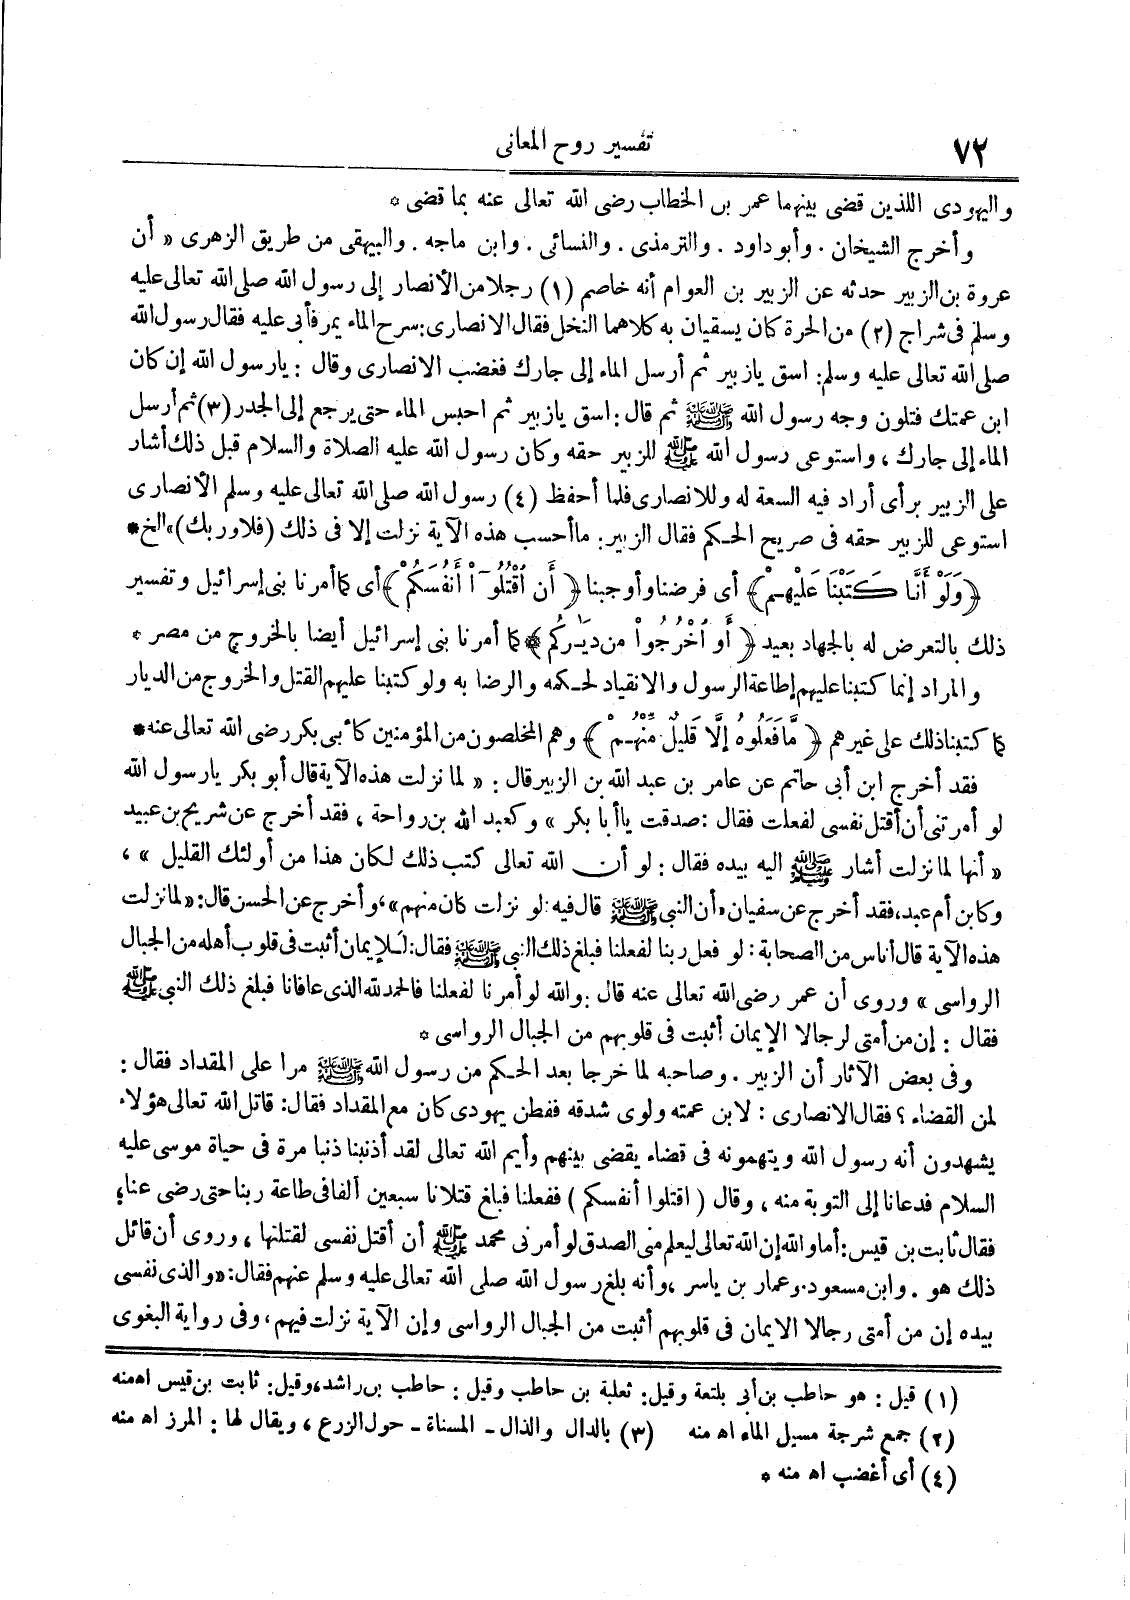 ٧٢
تفسير روح المعانى
واليهودى اللذين قضى بينهما عمر بن الخطاب رضى الله تعالى عنه بما قضى *
وأخرج الشيخان . وأبو داود . والترمذى . والنسائى . وابن ماجه . والبيهقى من طريق الزهرى « أن
عروة بن الزبير حدثه عن الزبير بن العوام أنه خاصم (١) رجلا من الأنصار إلى رسول الله صلى الله تعالى عليه
وسلم فى شراج (٢) من الحرة كان يسقيان به كلاهما النخل فقال الانصارى: سرح الماء يمر فأبى عليه فقال رسول الله
صلى الله تعالى عليه وسلم: اسق يازبير ثم أرسل الماء إلى جارك فغضب الانصارى وقال : يارسول الله إن كان
ابن عمتك فتلون وجه رسول الله ﷺ ثم قال : اسق يازبير ثم احبس الماء حتى يرجع إلى الجدر (٣) ثم أرسل
الماء إلى جارك ، واستوعى رسول الله ﷺ للزبير حقه وكان رسول الله عليه الصلاة والسلام قبل ذلك أشار
على الزبير برأى أراد فيه السعة له وللانصارى فلما أحفظ (٤) رسول الله صلى الله تعالى عليه وسلم الأنصارى
استوعى للزبير حقه فى صريح الحكم فقال الزبير: ماأحسب هذه الآية نزلت إلا فى ذلك (فلا وربك)» الخ *
﴿ وَلَوْ أَنَّا كَتَبْنَا عَلَيْهِمْ ﴾ أى فرضنا وأوجبنا ﴿ أَنِ اقْتُلُوٓاْ أَنفُسَكُمْ ﴾ أى كما أمرنا بنى إسرائيل وتفسير
ذلك بالتعرض له بالجهاد بعيد ﴿ أَوِ اخْرُجُواْ مِن دِيَـٰرِكُم ﴾ كما أمرنا بنى إسرائيل أيضا بالخروج من مصر *
والمراد إنما كتبنا عليهم إطاعة الرسول والانقياد لحكمه والرضا به ولو كتبنا عليهم القتل والخروج من الديار
كما كتبنا ذلك على غيرهم ﴿ مَّا فَعَلُوهُ إِلَّا قَلِيلٌ مِّنْهُمْ ﴾ وهم المخلصون من المؤمنين كأبى بكر رضى الله تعالى عنه *
فقد أخرج ابن أبى حاتم عن عامر بن عبد الله بن الزبير قال : « لما نزلت هذه الآية قال أبو بكر يارسول الله
لو أمرتنى أن أقتل نفسى لفعلت فقال : صدقت ياأبا بكر » وكعبد الله بن رواحة ، فقد أخرج عن شريح بن عبيد
« أنها لما نزلت أشار ﷺ اليه بيده فقال : لو أن الله تعالى كتب ذلك لكان هذا من أولئك القليل » ،
وكابن أم عبد، فقد أخرج عن سفيان «أن النبى ﷺ قال فيه: لو نزلت كان منهم»، وأخرج عن الحسن قال: «لما نزلت
هذه الآية قال أناس من الصحابة : لو فعل ربنا لفعلنا فبلغ ذلك النبى ﷺ فقال: لَلإيمان أثبت فى قلوب أهله من الجبال
الرواسى » وروى أن عمر رضى الله تعالى عنه قال : والله لو أمرنا لفعلنا فالحمد لله الذى عافانا فبلغ ذلك النبى ﷺ
فقال : إن من أمتى لرجالا الإيمان أثبت فى قلوبهم من الجبال الرواسى *
وفى بعض الآثار أن الزبير . وصاحبه لما خرجا بعد الحكم من رسول الله ﷺ مرا على المقداد فقال :
لمن القضاء ؟ فقال الانصارى : لابن عمته ولوى شدقه ففطن يهودى كان مع المقداد فقال: قاتل الله تعالى هؤلاء
يشهدون أنه رسول الله ويتهمونه فى قضاء يقضى بينهم وأيم الله تعالى لقد أذنبنا ذنبا مرة فى حياة موسى عليه
السلام فدعانا إلى التوبة منه ، وقال ( اقتلوا أنفسكم ) ففعلنا فبلغ قتلانا سبعين ألفا فى طاعة ربنا حتى رضى عنا؛
فقال ثابت بن قيس : أما والله إن الله تعالى ليعلم منى الصدق لو أمرنى محمد ﷺ أن أقتل نفسى لقتلتها ، وروى أن قائل
ذلك هو . وابن مسعود. وعمار بن ياسر ، وأنه بلغ رسول الله صلى الله تعالى عليه وسلم عنهم فقال: «والذى نفسى
بيده إن من أمتى رجالا الايمان فى قلوبهم أثبت من الجبال الرواسى وإن الآية نزلت فيهم ، وفى رواية البغوى
(١) قيل : هو حاطب بن أبى بلتعة وقيل: ثعلبة بن حاطب وقيل : حاطب بن راشد، وقيل: ثابت بن قيس اه منه
(٢) جمع شرجة مسيل الماء اه منه (٣) بالدال والذال - المسناة - حول الزرع ، ويقال لها : المرز اه منه
(٤) أى أغضب اه منه *